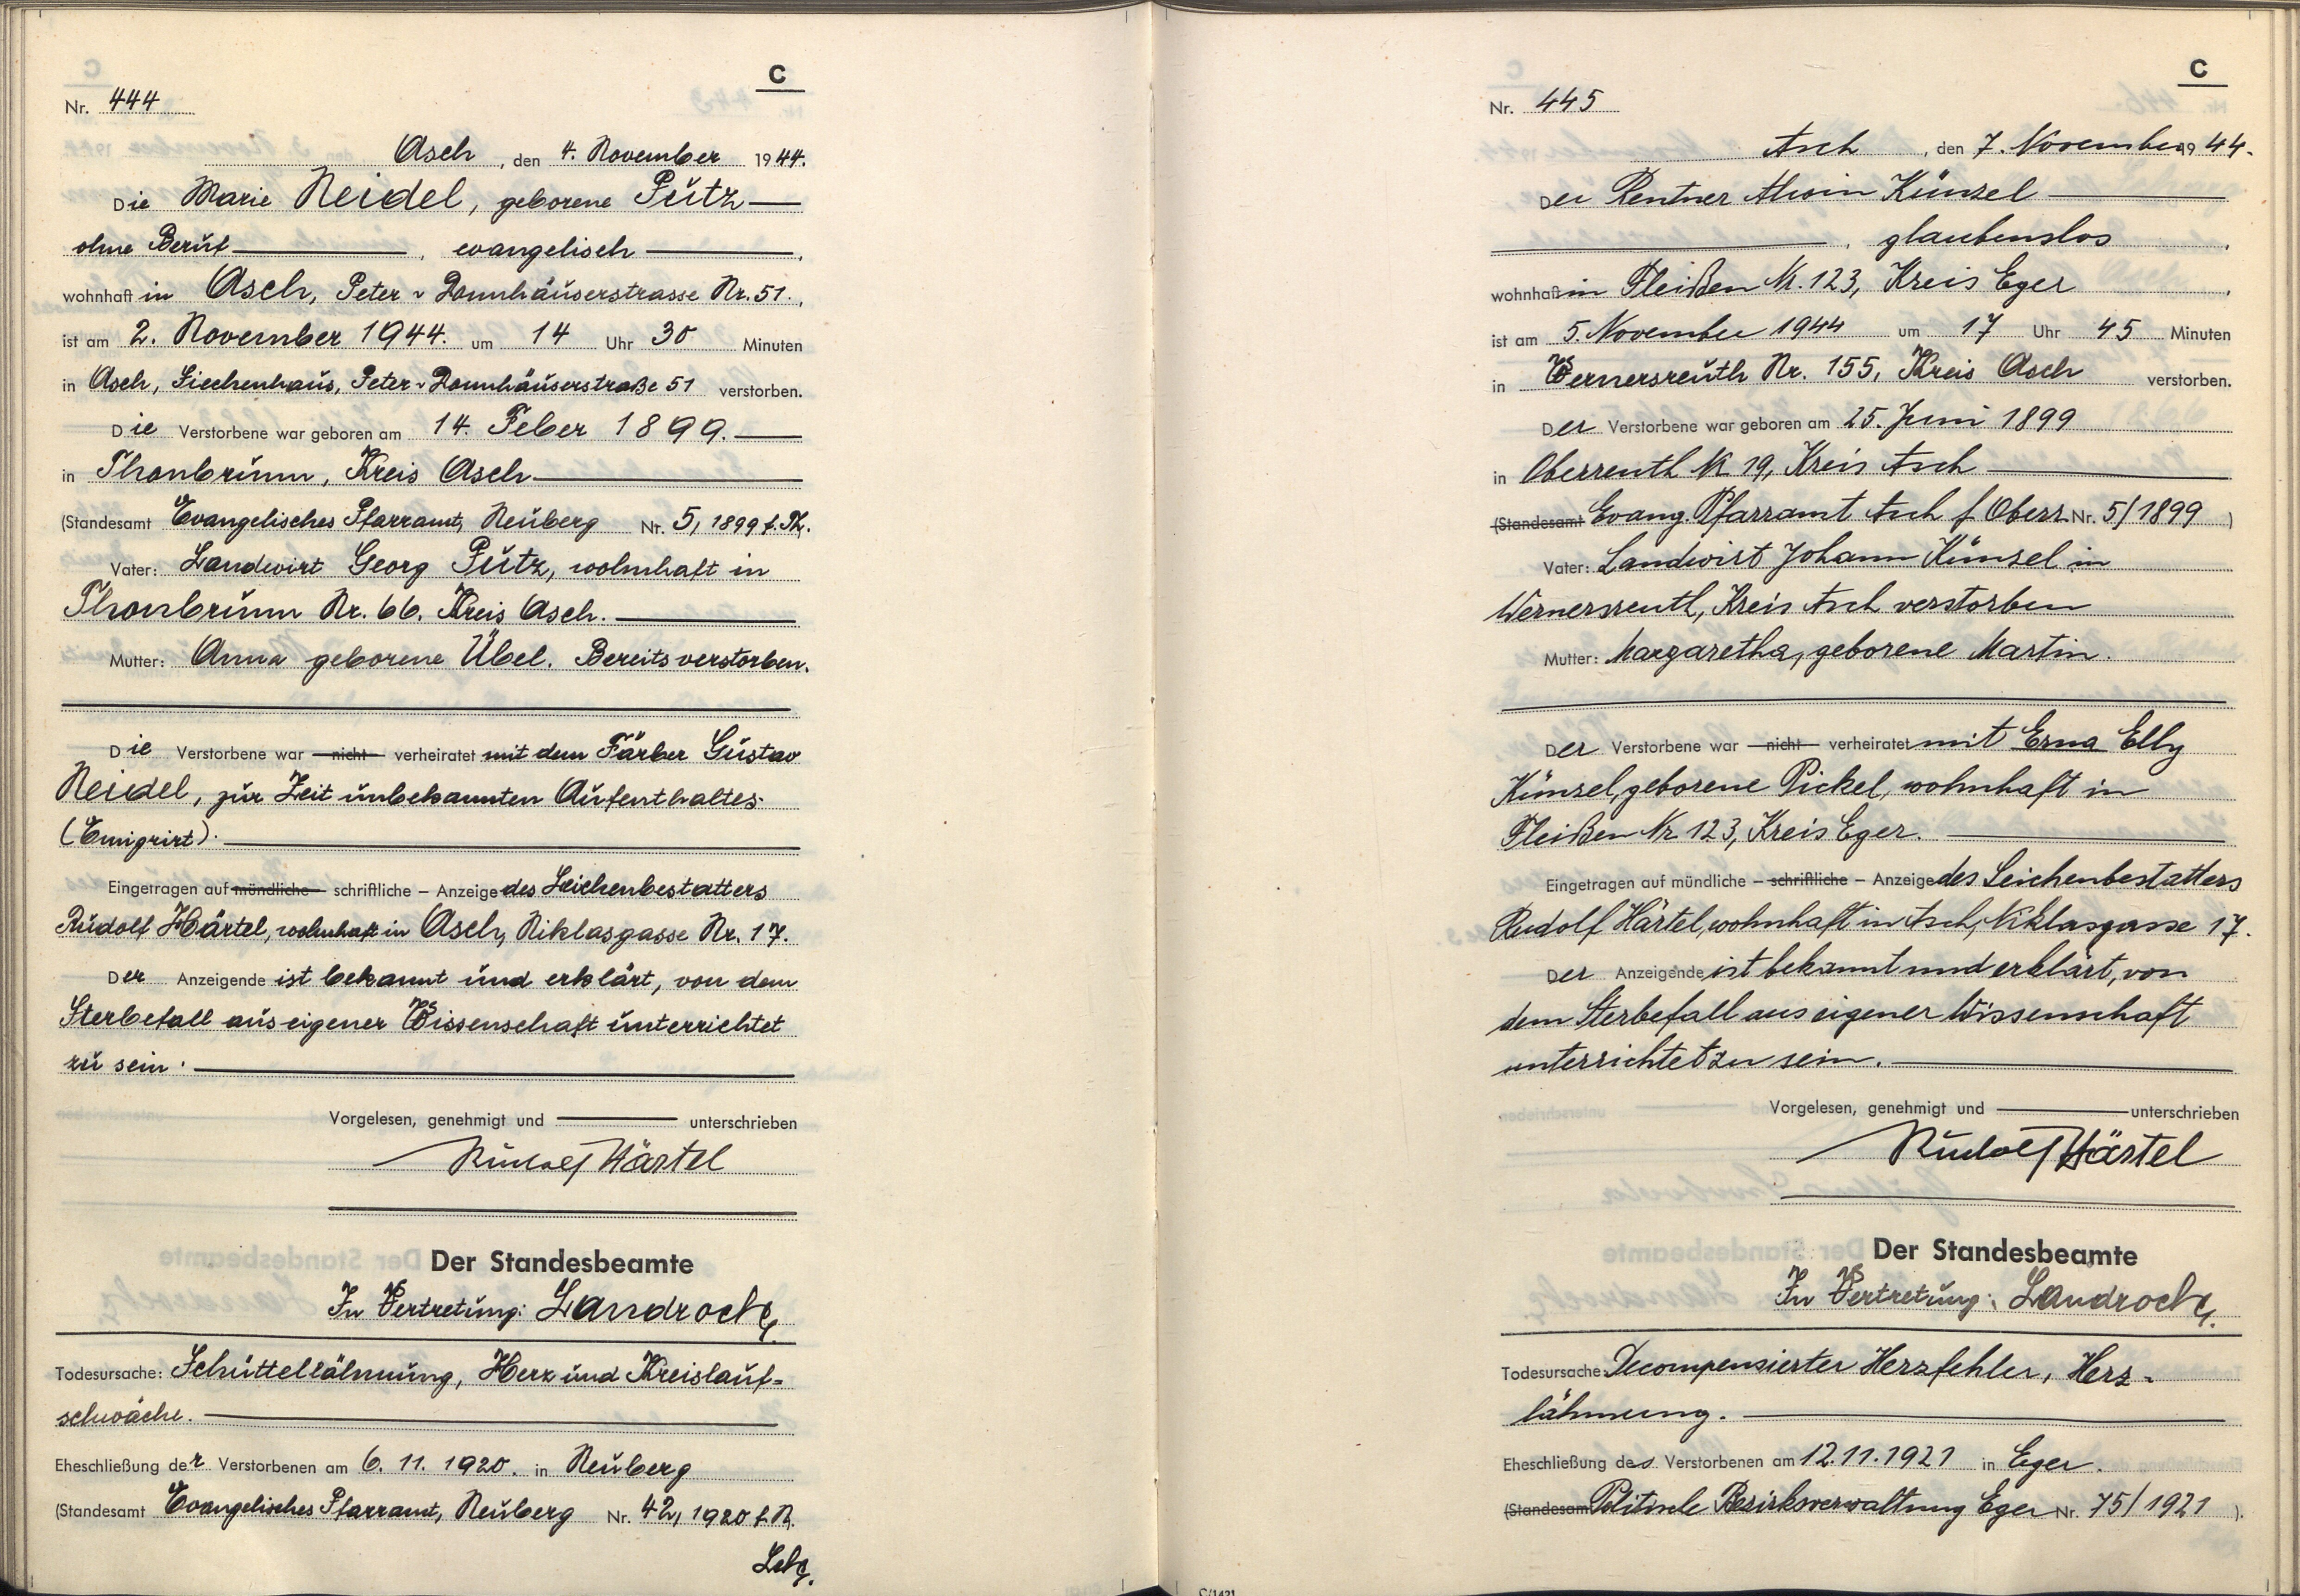 C
Nr. 444
Asch, den 4. November 1944.
Die Marie Neidel, geborene Pütz
ohne Beruf, evangelisch,
wohnhaft in Asch, Peter-Donnhäuserstrasse Nr. 51.,
ist am 2. November 1944. um 14 Uhr 30 Minuten
in Asch, Siechenhaus, Peter-Donnhäuserstraße 51 verstorben.
Die Verstorbene war geboren am 14. Feber 1899.
in Thonbrunn, Kreis Asch
(Standesamt Evangelisches Pfarramt, Neuberg Nr. 5, 1899 f. Th.
Vater: Landwirt Georg Pütz, wohnhaft in
Thonbrunn Nr. 66. Kreis Asch.
Mutter: Anna geborene Übel. Bereits verstorben.
Die Verstorbene war nicht verheiratet mit dem Färber Gustav
Neidel, zur Zeit unbekannten Aufenthaltes.
(Emigrirt).
Eingetragen auf mündliche schriftliche – Anzeige des Leichenbestatters
Rudolf Härtel, wohnhaft in Asch, Niklasgasse Nr. 17.
Der Anzeigende ist bekannt und erklärt, von dem
Sterbefall aus eigener Wissenschaft unterrichtet
zu sein.
Vorgelesen, genehmigt und unterschrieben
Rudolf Härtel
Der Standesbeamte
In Vertretung: Landrock
Todesursache: Schüttellähmung, Herz und Kreislauf-
schwäche.
Eheschließung der Verstorbenen am 6. 11. 1920. in Neuberg
(Standesamt Evangelisches Pfarramt, Neuberg Nr. 42, 1920 f. N.
C
Nr. 445
Asch, den 7. November 1944.
Der Rentner Alwin Künzel
, glaubenslos,
wohnhaft in Fleißen Nr. 123, Kreis Eger,
ist am 5. November 1944 um 17 Uhr 45 Minuten
in Wernersreuth Nr. 155, Kreis Asch verstorben.
Der Verstorbene war geboren am 25. Juni 1899
in Oberreuth Nr. 19, Kreis Asch
(Standesamt Evang. Pfarramt Asch f. Oberr. Nr. 5/1899)
Vater: Landwirt Johann Künzel in
Wernersreuth, Kreis Asch verstorben
Mutter: Margaretha, geborene Martin.
Der Verstorbene war nicht verheiratet mit Erna Elly
Künzel, geborene Pickel, wohnhaft in
Fleißen Nr. 123, Kreis Eger.
Eingetragen auf mündliche – schriftliche – Anzeige des Leichenbestatters
Rudolf Härtel, wohnhaft in Asch, Niklasgasse 17.
Der Anzeigende ist bekannt und erklärt, von
dem Sterbefall aus eigener Wissenschaft
unterrichtet zu sein.
Vorgelesen, genehmigt und unterschrieben
Rudolf Härtel
Der Standesbeamte
In Vertretung: Landrock
Todesursache: Decompensierter Herzfehler, Herz-
lähmung.
Eheschließung des Verstorbenen am 12.11.1921 in Eger.
(Standesamt Politische Bezirksverwaltung Eger Nr. 75/1921).